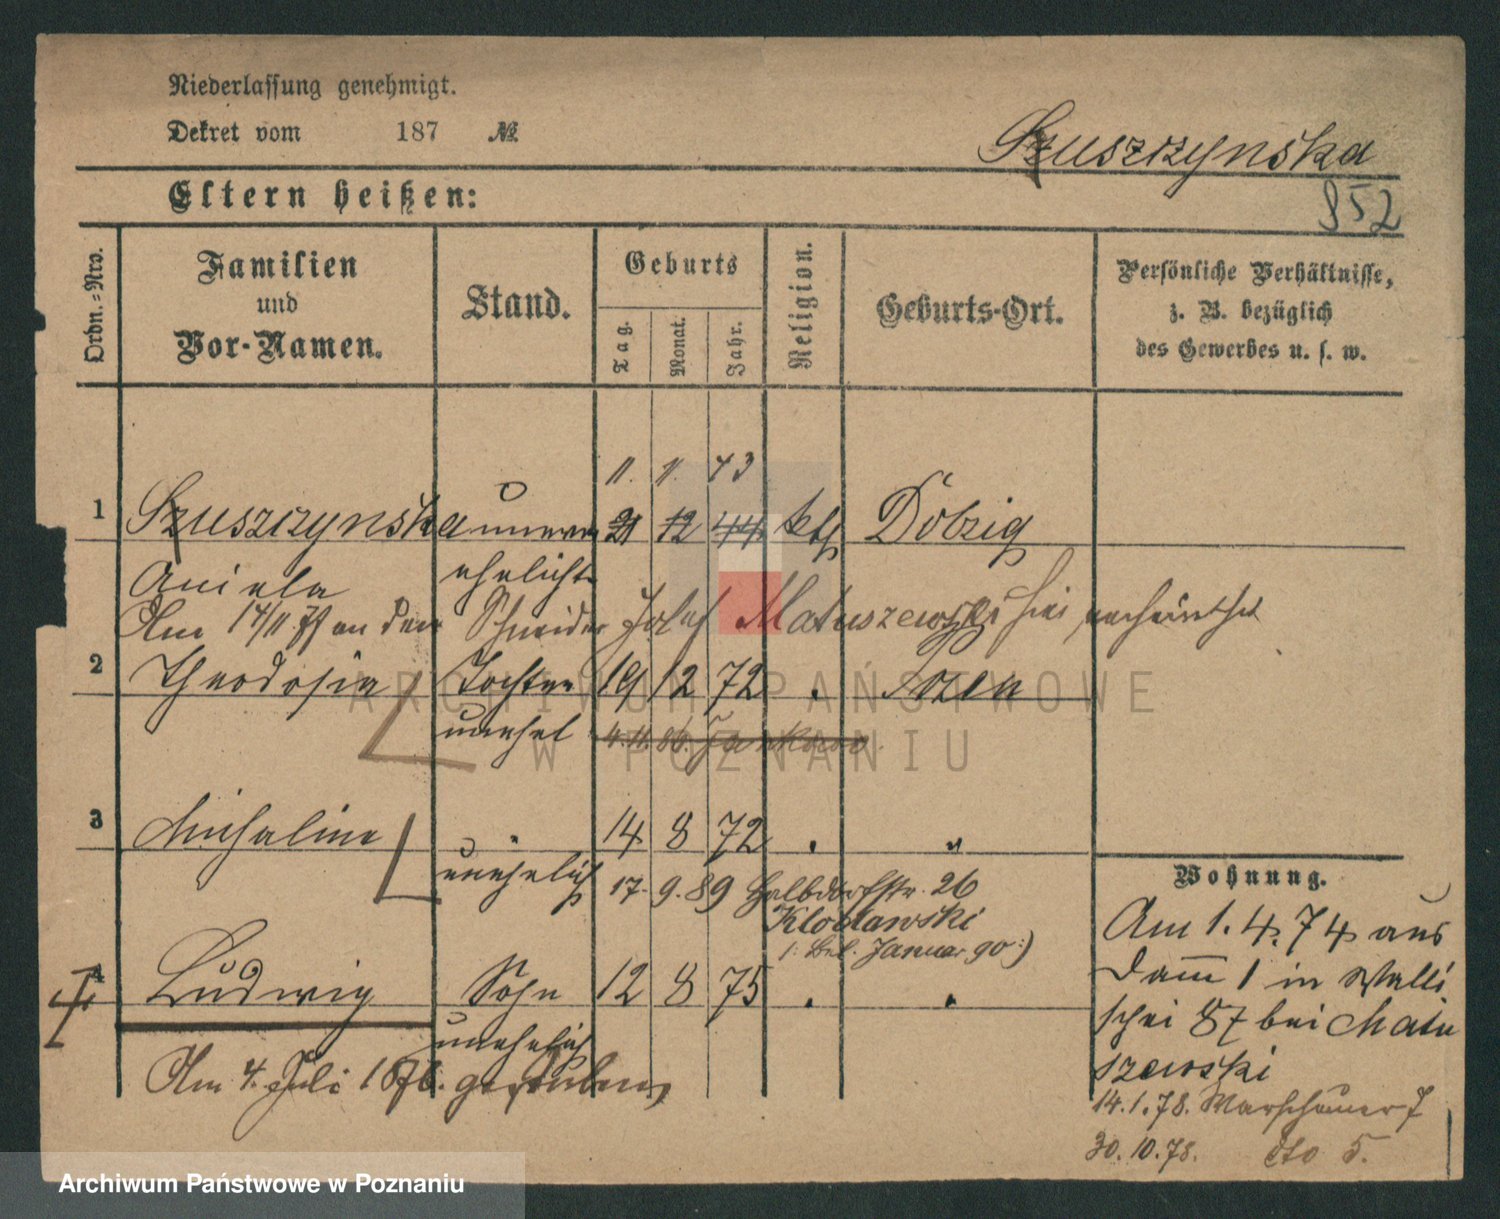 Niederlassung genehmigt.
Dekret vom 187 №
Szuszczynska
852
Eltern heißen:
Ordn.-Nro.
Familien und Vor-Namen.
Stand.
Geburts
Tag.
Monat.
Jahr.
Religion.
Geburts-Ort.
Persönliche Verhältnisse, z. B. bezüglich des Gewerbes u. s. w.
11. 11. 43
1 Szuszczynska unver 21 12 44 kth Dobzig
Aniela ehelichte
Am 17/11 77 an den Schneider Josef Matuszewski hier verheirathet
2 Theodosia Tochter 19 12 72 . Posen
unehel 4. 11. 86. Jankowo.
3 Michalina " 14 8 72 . "
unehelich 17. 9. 89 Halbdorfstr. 26
Klodawski
Januar 90:)
4 Ludwig Sohn 12 8 75 . "
unehelich
Am 4. Juli 1876. gestorben
Wohnung.
Am 1. 4. 74 aus
Damm 1 in Walli
schei 87 bei Matu
szewski
14. 1. 78. Warschauer 7
30. 10. 78. dto 5.
ARCHIWUM PAŃSTWOWE
W POZNANIU
Archiwum Państwowe w Poznaniu